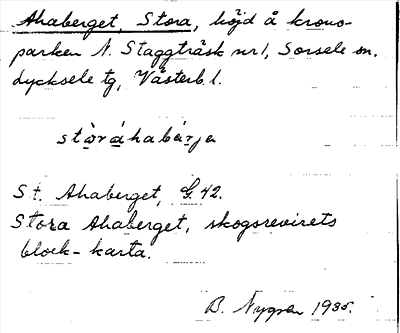 Ahaberget, Stora, höjd å krono-
parken N. Staggträsk nr 1, Sorsele sn.
Lycksele tg, Västerb. l.
stòráhabärja
St. Ahaberget, G. 42.
Stora Ahaberget, skogsrevirets
block-karta.
B. Nygren 1935.